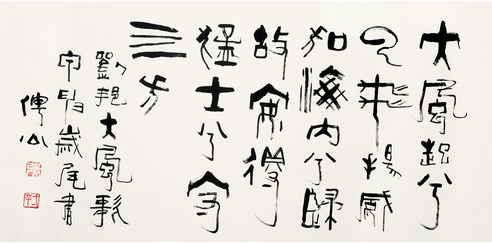 大風起兮
云飛揚威
加海內兮歸
故安得
猛士兮守
亖方
劉邦大風歌
歲尾書